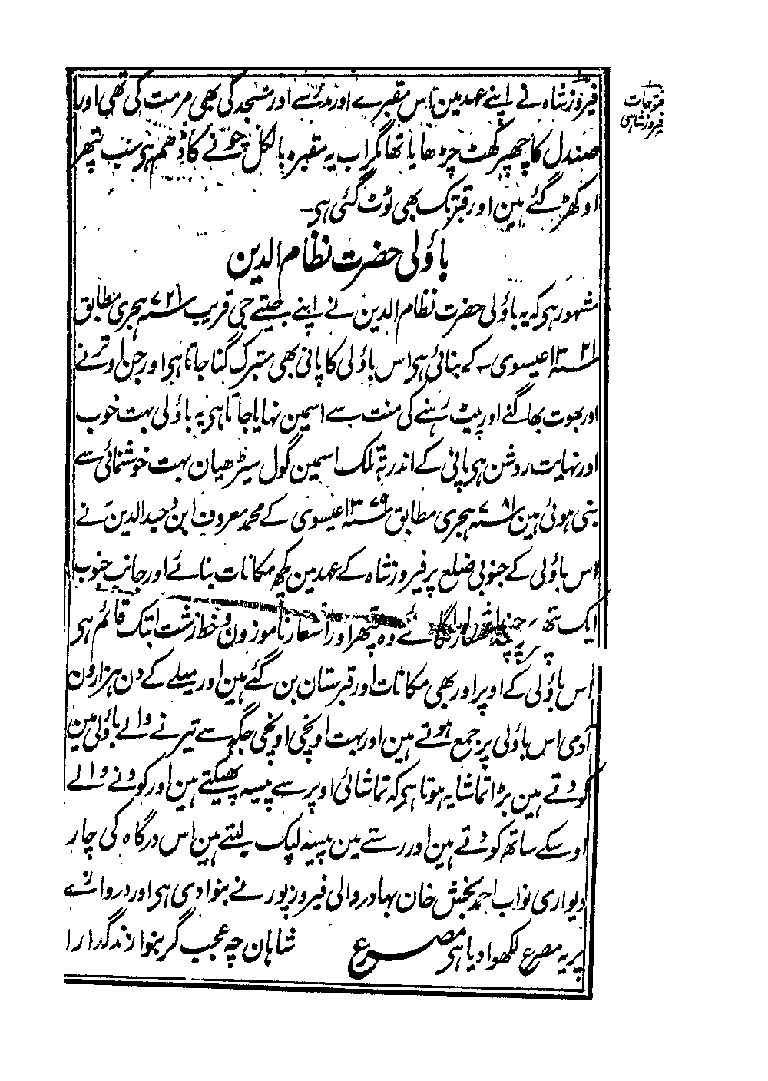 فیروز شاہ نے اپنے عہد مین اس مقبرے اور مدرسے اور مسجد کی بھی مرمت کی تھی اور
صندل کا چھپر کھٹ چڑھایا تھا مگر اب یہ مقبرہ بالکل چونے کا ڈھم ہی سب پتھر
اوکھڑ گئے ہین اور قبر تک بھی ٹوٹ گئی ہی۔
باؤلی حضرت نظام الدین
مشہور ہی کہ یہ باؤلی حضرت نظام الدین نے اپنے جیتے جی قریب ۷۲۱ ہجری مطابق
۱۳۲۱ عیسوی کے بنائی ہی اس باؤلی کا پانی بھی متبرک گنا جاتا ہی اور جن اوترنے
اور بھوت بھاگنے اور پیٹ رہنے کی منت سے اسمین نہایا جاتا ہی یہ باؤلی بہت خوب
اور نہایت روشن ہی پانی کے اندر تہ تلک اسمین گول سیڑھیان بہت خوشنمائی سے
بنی ہوئی ہین ۷۸۱ ہجری مطابق ۱۳۷۹ عیسوی کے محمد معروف ابن وحید الدین نے
اس باؤلی کے جنوبی ضلع پر فیروز شاہ کے عہد مین کچھ مکانات بنائے اور جانب جنوب
ایک پتھر پر چند اشعار لگائے وہ پتھر اور اشعار ناموزون و خط زشت ابتک قائم ہی
اس باؤلی کے اوپر اور بھی مکانات اور قبرستان بن گئے ہین اور میلے کے دن ہزارون
آدمی اس باؤلی پر جمع ہوتے ہین اور بہت اونچی اونچی جگہ سے تیرنے والے باؤلی مین
کودتے ہین بڑا تماشا یہ ہوتا ہی کہ تماشائی اوپر سے پیسہ پھینکتے ہین اور کودنے والے
اوسکے ساتھ کودتے ہین اور رستے مین پیسہ لپک لیتے ہین اس درگاہ کی چار
دیواری نواب احمد بخش خان بہادر والی فیروزپور نے بنوادی ہی اور دروازے
پر یہ مصرع لکھوا دیا ہی مصرع شاہان چہ عجب گر بنوازند گدا را
فتوحات
فیروزشاہی